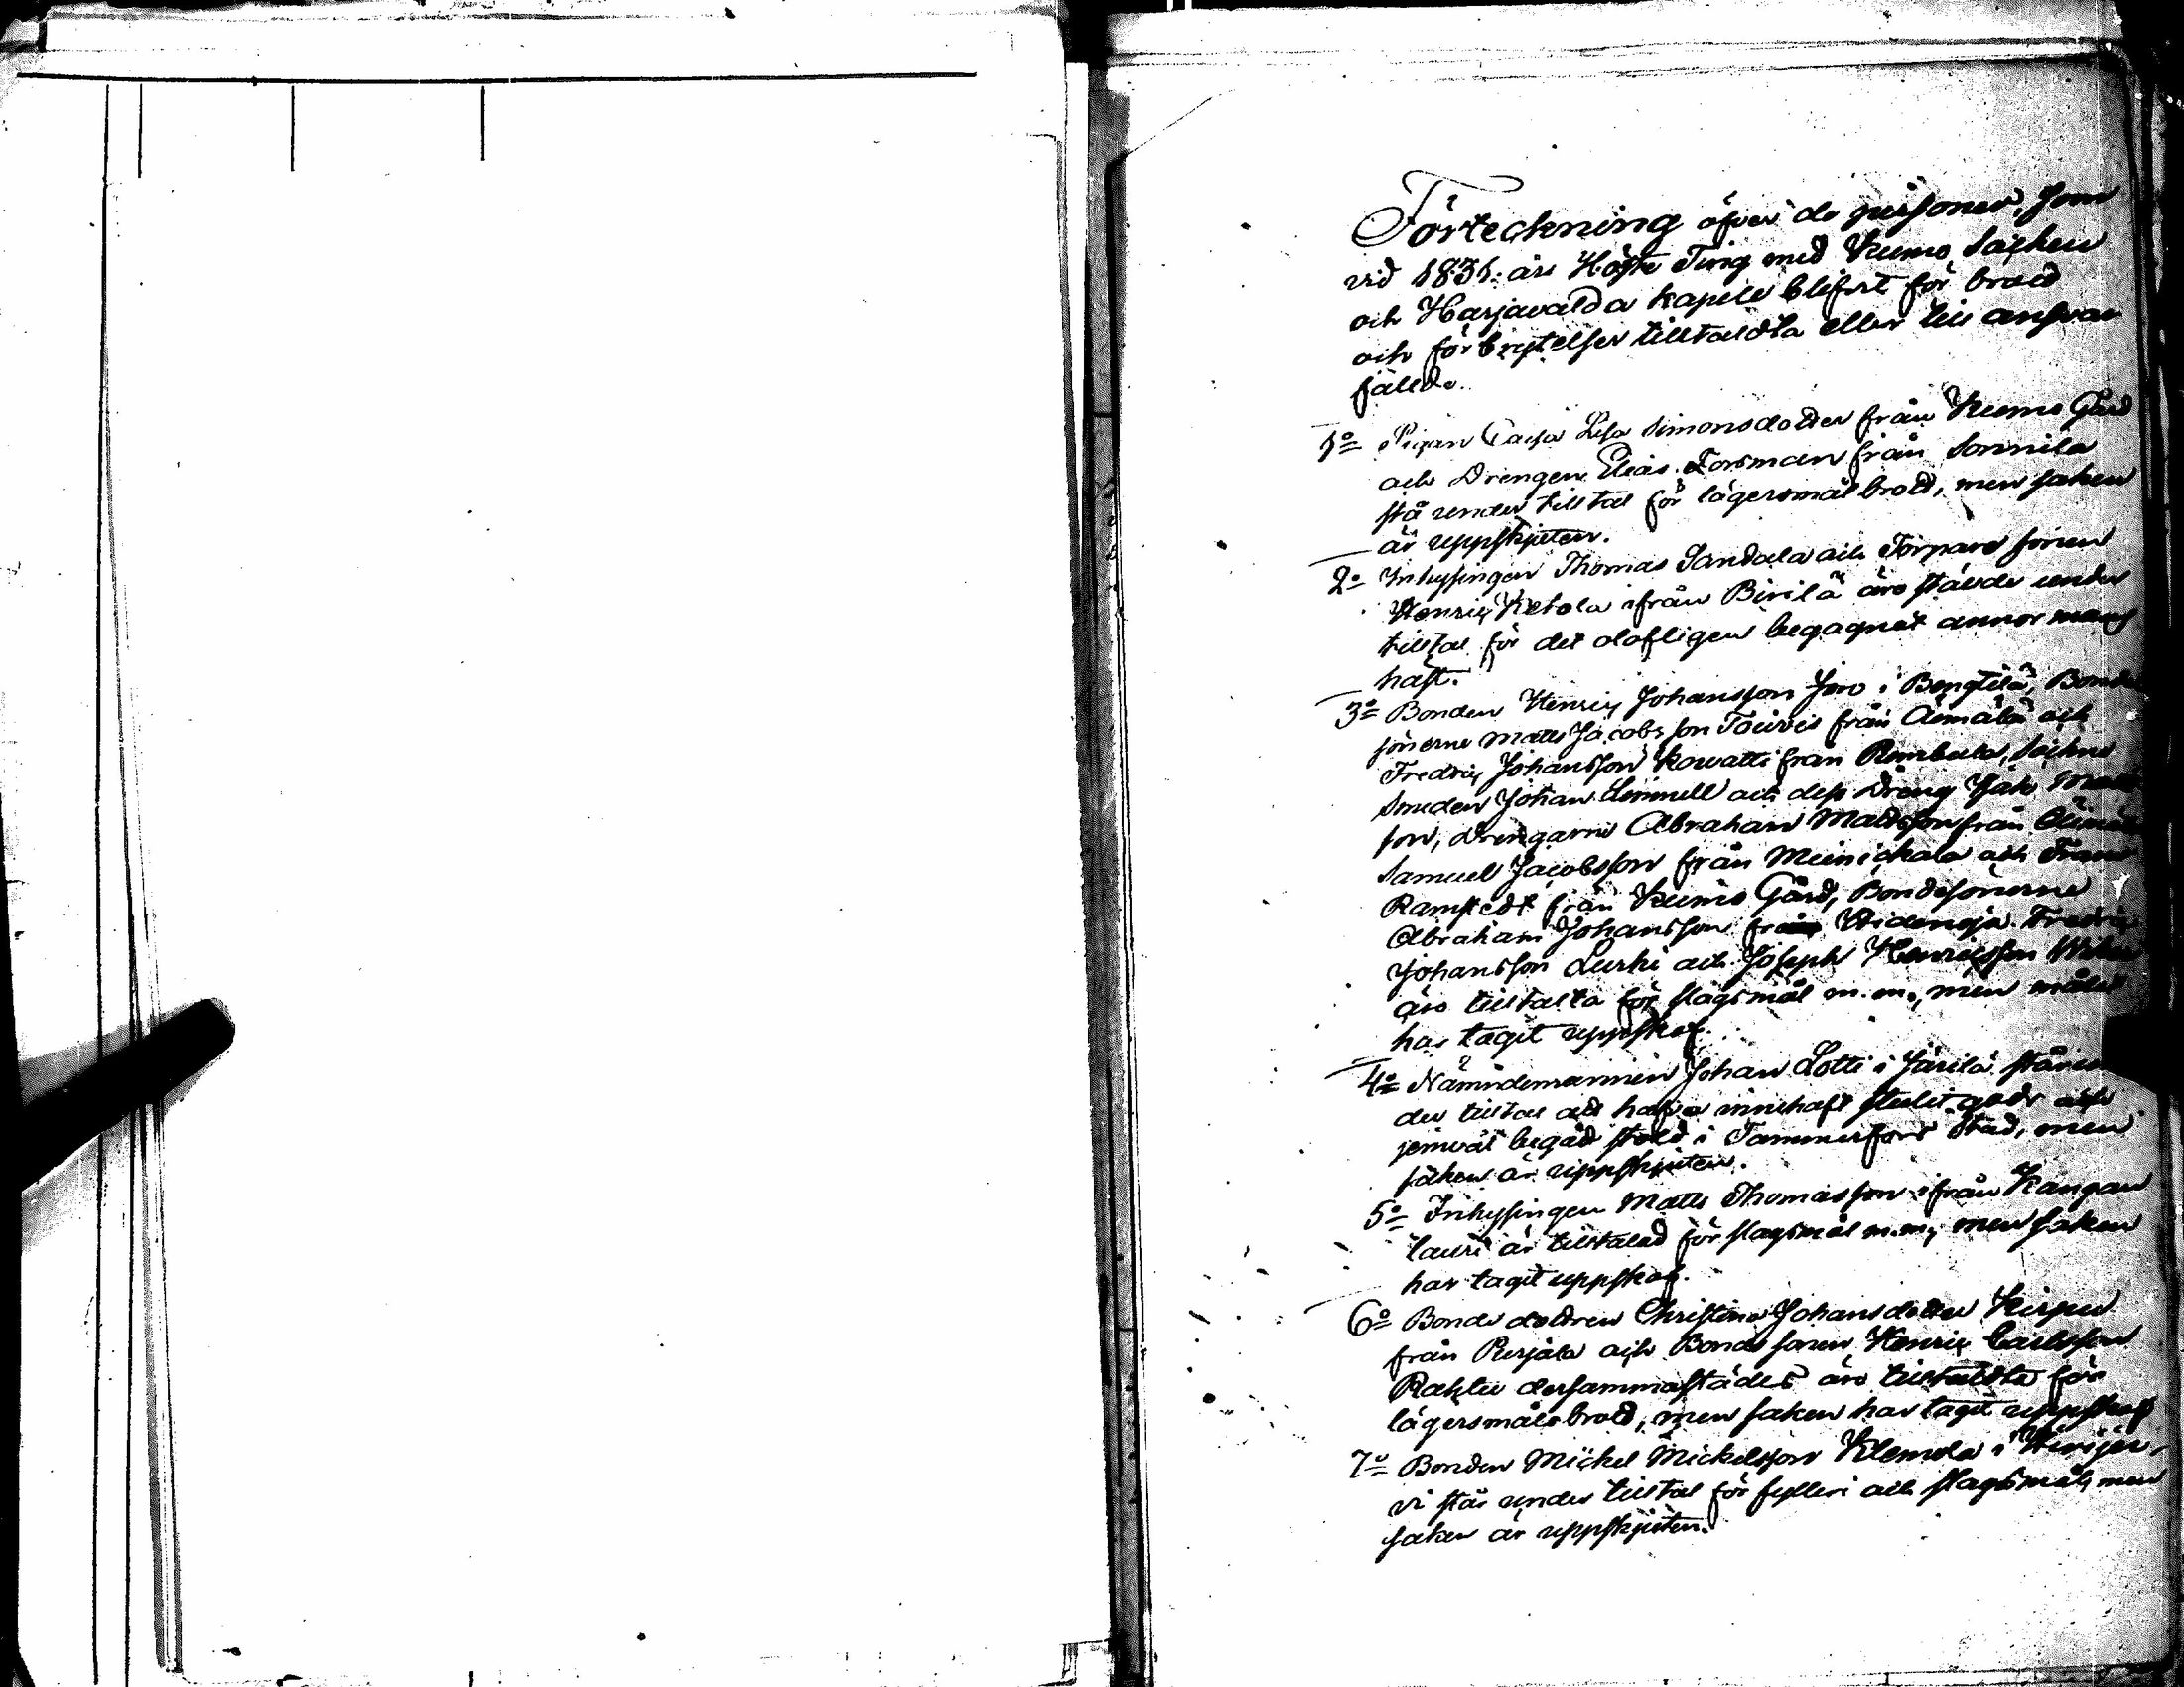 Förteckning öfver de personer, som
vid 1831 års Höste Ting med Kumo Socken
och Harjavalda kapell blifvit för brott
och förbrytelser tilltaldta eller till ansvar
fällde.
1o Pigan Caisa Lisa Simonsdotter från Kumo Gård
och Drengen Elias Forsman från Sonnila
stå under tilltal för lägersmålsbrott, men saken
är uppskjuten.
2o Inhysingen Thomas Sandala och Torpare sonen
Henric Ketola ifrån Birilä äro stände under
tilltal för det olofligen begagnat annor mans
häst.
3o Bonden Henric Johansson i Bengtilä, Bonde
sönerne Matts Jacobsson från och
Fredric Johansson Kowatti från Rombula, Socken
Smeden Johan och dess Dräng
son, Drengarne Abraham Mattsson från
Samuel Jacobsson från och Frans
Ramstedt från Kumo Gård, Bondesönerne
Abraham Johansson från Fredric
Johansson Lurki och Joseph Henricsson
äro tilltalta för slagsmål m.m., men målet
har tagit uppskof.
4o Nämndemannen Johan Lotti i Järilä stån un
der tilltal att hafva innehaft stulit gods och
jemväl begåd stöld i Tammerfors Stad, men
saken är uppskjuten.
5o Inhysingen Matts Thomasson ifrån Kangan
lauri är tilltalad för slagsmål m.m., men saken
har tagit uppskof.
6o Bonde dottren Christina Johansdotter
från och Bonde sonen Henric Carlsson
dersammastädes äro tilltaldta för
lägersmålsbrott, men saken har tagit uppskof
7o Bonden Michel Mickelsson Klemola i
vi står under tilltal för fylleri och slagsmål, men
saken är uppskjuten.